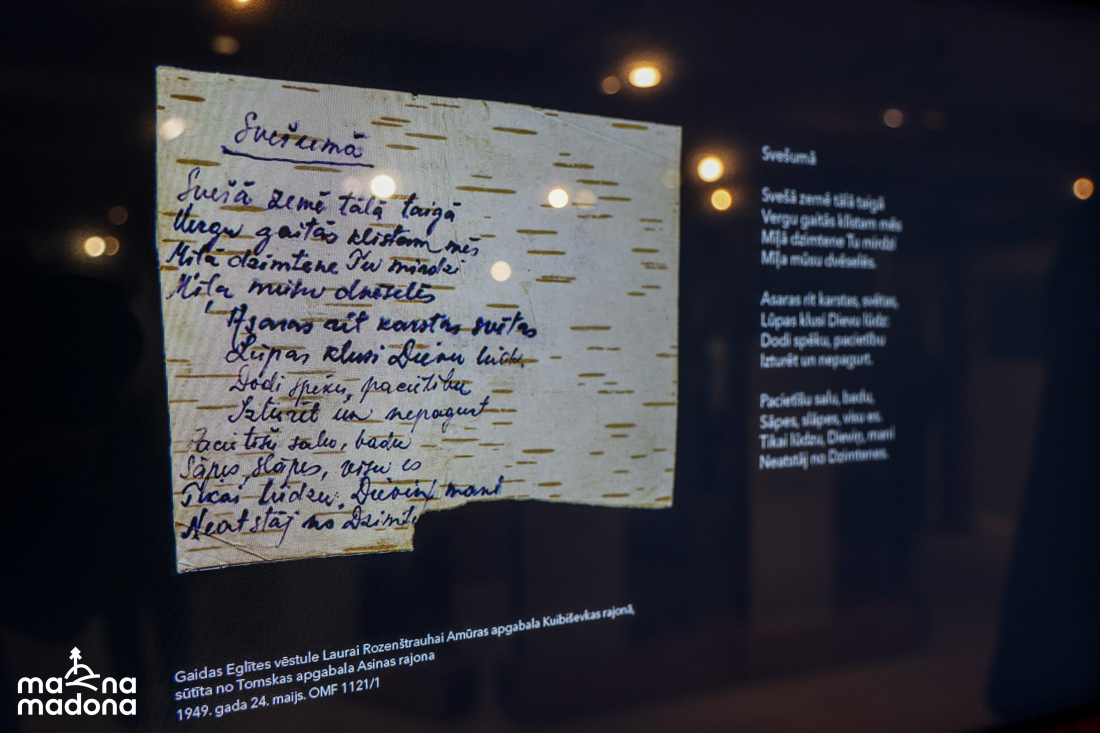 Svešumā
Svešā zemē tālā taigā
Vergu gaitās klīstam mēs
Mīļā dzimtene Tu mirdzi
Mīļa mūsu dvēselēs
Asaras rit karstas svētas
Lūpas klusi Dievu lūdz.
Dodi spēku, pacietību
Izturēt un nepagurt
Pacietīšu salu, badu
Sāpes, slāpes, visu es
Tikai lūdzu, Dieviņ, mani
Neatstāj no Dzimte
Svešumā
Svešā zemē tālā taigā
Vergu gaitās klīstam mēs
Mīļā dzimtene Tu mirdzi
Mīļa mūsu dvēselēs.
Asaras rit karstas, svētas,
Lūpas klusi Dievu lūdz:
Dodi spēku, pacietību
Izturēt un nepagurt.
Pacietīšu salu, badu,
Sāpes, slāpes, visu es.
Tikai lūdzu, Dieviņ, mani
Neatstāj no Dzimtenes.
Gaidas Eglītes vēstule Laurai Rozenštrauhai Amūras apgabala Kuibiševkas rajonā,
sūtīta no Tomskas apgabala Asinas rajona
1949. gada 24. maijs. OMF 1121/1
mana
madona